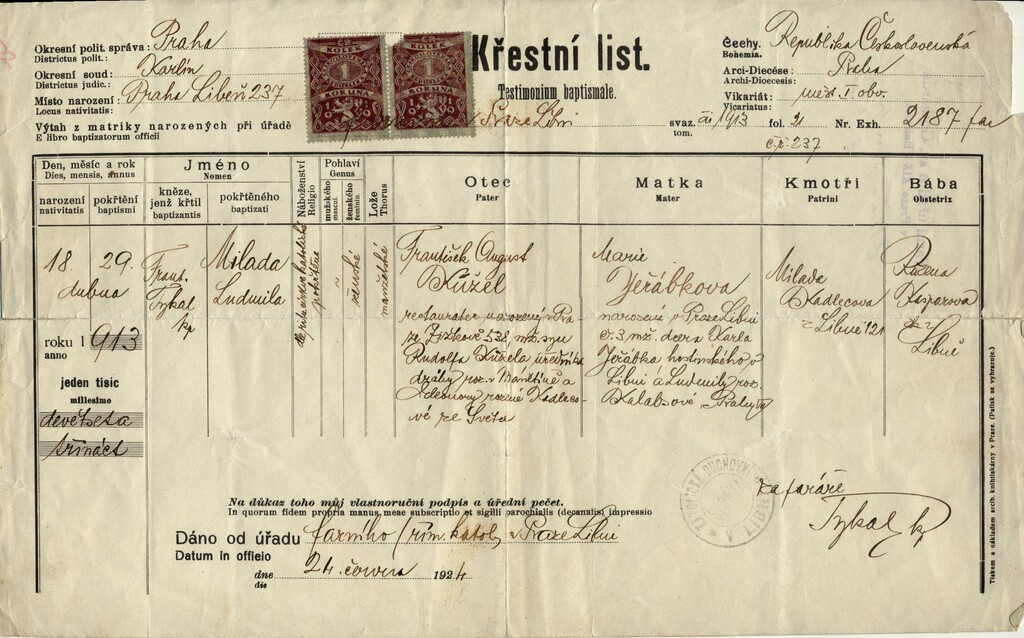 Křestní list.
Testimonium baptismale.
Okresní polit. správa: Praha
Districtus polit.:
Okresní soud: Karlín
Districtus judic.:
Místo narození: Praha Libeň 237
Locus nativitatis:
Výtah z matriky narozených při úřadě Praze Libni svaz. 1913 fol. 21 Nr. Exh. 2187 far
E libro baptizatorum officii tom.
č.p. 237
Čechy. Republika Československá
Bohemia.
Arci-Diecése: Praha
Archi-Dioecesis:
Vikariát: měst. I. obv.
Vicariatus:
KOLEK
1
KORUNA
KOLEK
1
KORUNA
Den, měsíc a rok
Dies, mensis, annus
narození
nativitatis
pokřtění
baptismi
Jméno
Nomen
kněze,
jenž křtil
baptizantis
pokřtěného
baptizati
Náboženství
Religio
Pohlaví
Genus
mužského
mascul.
ženského
feminin.
Lože
Thorus
Otec
Pater
Matka
Mater
Kmotři
Patrini
Bába
Obstetrix
18. 29.
dubna
roku 1913
anno
jeden tisíc
millesimo
devětseta
třináct
Frant.
Tykal
kp
Milada
Ludmila
ženské
manželské
František August
Kužel
restauratér narozený v Pra-
ze Žižkově 538, mž. syn
Rudolfa Kužela úředníka
dráhy roz. v Manětíně a
rozené Kadleco-
vé ze Světa
Marie
Jeřábkova
narozena v Praze Libni
č. 3 mž. dcera Karla
Jeřábka hostinského v
Libni a Ludmily roz.
Prahy
Milada
Kadlecova
z Libně 121
Růžena
Kasparova
z
Libně
Na důkaz toho můj vlastnoruční podpis a úřední pečet.
In quorum fidem propria manus, meae subscriptio et sigilli parochialis (decanalis) impressio
Dáno od úřadu farního řím. katol. v Praze Libni
Datum in officio
dne 24. června 1924
die
za faráře
Tykal kp
DUCHOVNÍ
V LIBNI
Tiskem a nákladem arcib. knihtiskárny v Praze. (Patisk se vyhrazuje.)